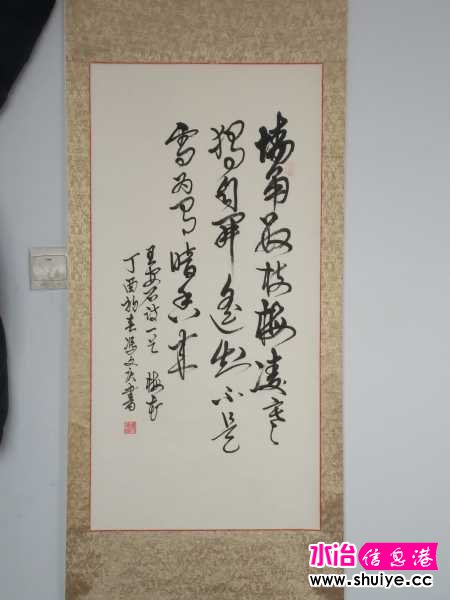 墙角数枝梅凌寒
独自开遥知不是
雪为有暗香来
王安石诗一首 梅花
丁酉初春冯文庆書
水冶信息港
www.shuiye.cc